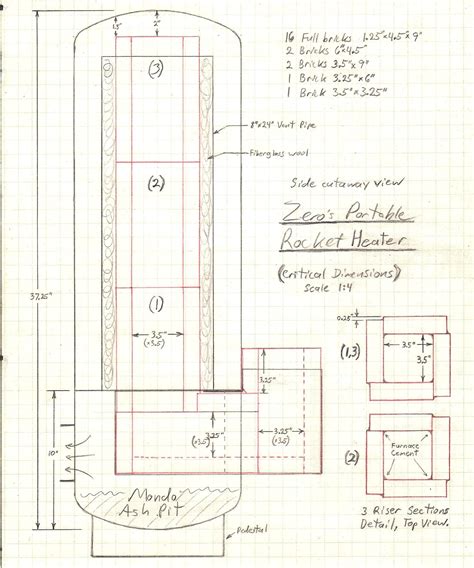 16 Full bricks 1.25"x4.5"x9"
2 Bricks 6"x4.5"
2 Bricks 3.5"x9"
1 Brick 3.25"x6"
1 Brick 3.5"x3.25"
1.5"
2"
(3)
8"x24" Vent Pipe
Fiberglass wool
Side cutaway view
Zero's Portable
Rocket Heater
(Critical Dimensions)
Scale 1:4
(2)
37.25"
(1)
3.5"
(x3.5)
0.25"
(1,3)
3.5"
3.5"
3.25"
3.25"
(x3.5)
3.25"
(x3.5)
10"
(2)
Furnace
Cement
Mondo
Ash Pit
Pedestal
3 Riser Sections
Detail, Top View.